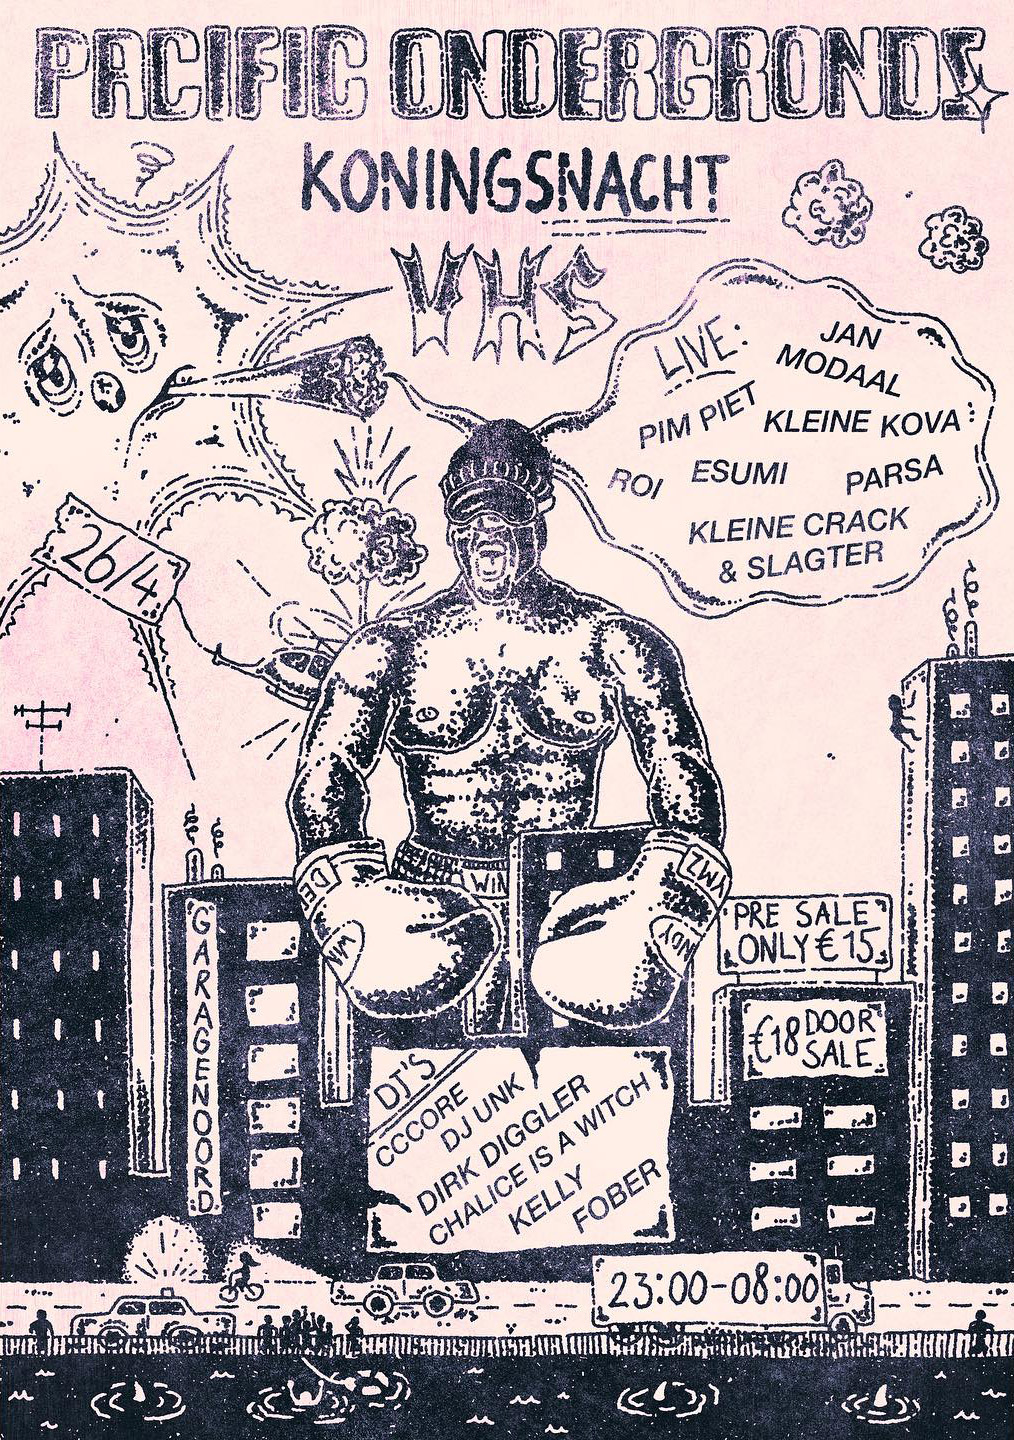 PACIFIC ONDERGRONDS
KONINGSNACHT
VHS
LIVE:
JAN
MODAAL
PIM PIET
KLEINE KOVA
ROI
ESUMI
PARSA
KLEINE CRACK
& SLAGTER
26/4
3
DE
WIN
WIN
YMZ
NDY
GARAGENOORD
PRE SALE
ONLY €15
€18 DOOR
SALE
DJ'S
CCCORE
DJ UNK
DIRK DIGGLER
CHALICE IS A WITCH
KELLY
FOBER
23:00-08:00